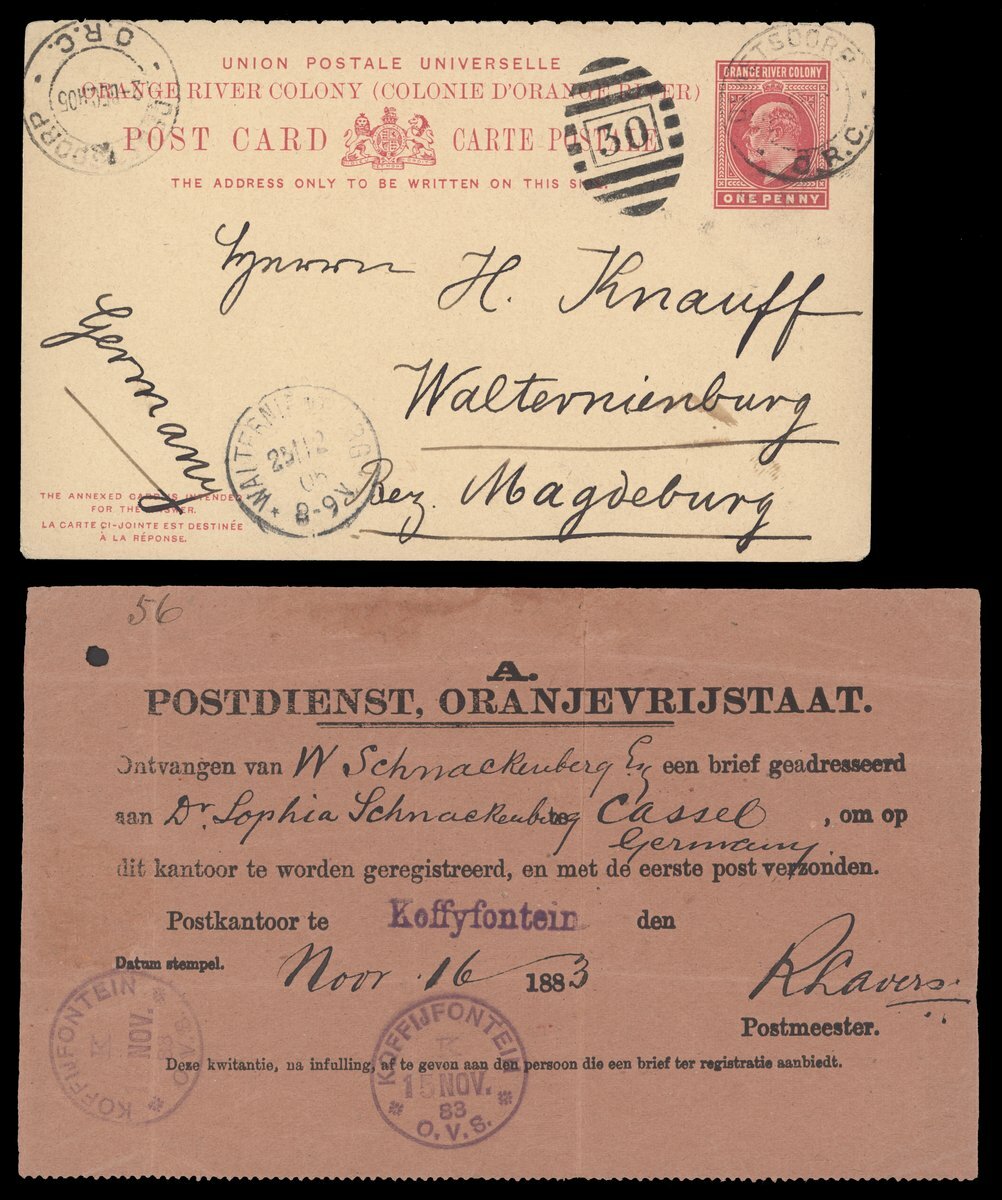 O.R.C.
UNION POSTALE UNIVERSELLE
ORANGE RIVER COLONY (COLONIE D'ORANGE RIVER)
POST CARD CARTE POSTALE
THE ADDRESS ONLY TO BE WRITTEN ON THIS SIDE.
30
ORANGE RIVER COLONY
ONE PENNY
O.R.C.
Herrn H. Knauff
Walternienburg
Bez. Magdeburg
Germany
WALTERNIENBURG
8-9 V.
THE ANNEXED CARD IS INTENDED
FOR THE ANSWER.
LA CARTE CI-JOINTE EST DESTINÉE
À LA RÉPONSE.
56
A.
POSTDIENST, ORANJEVRIJSTAAT.
Ontvangen van W Schnackenberg Esq een brief geadresseerd
aan Dr. Sophia Schnackenberg te Cassel, om op
Germany.
dit kantoor te worden geregistreerd, en met de eerste post verzonden.
Postkantoor te Koffyfontein den
Datum stempel. Novr 16 1883 R Lavers
Postmeester.
KOFFIJFONTEIN
NOV.
O.V.S.
KOFFIJFONTEIN
15 NOV.
83
O.V.S.
Deze kwitantie, na infulling, af te geven aan den persoon die een brief ter registratie aanbiedt.